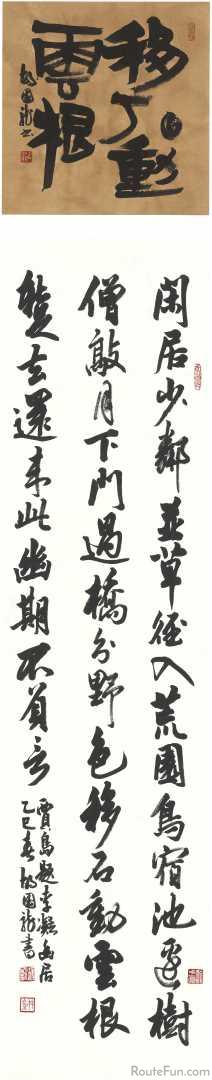 移石動
雲根
閑居少鄰並草徑入荒園鳥宿池邊樹
僧敲月下門過橋分野色移石動雲根
暫去還來此幽期不負言
賈島題李凝幽居
乙巳春 国龍書
RouteFun.com